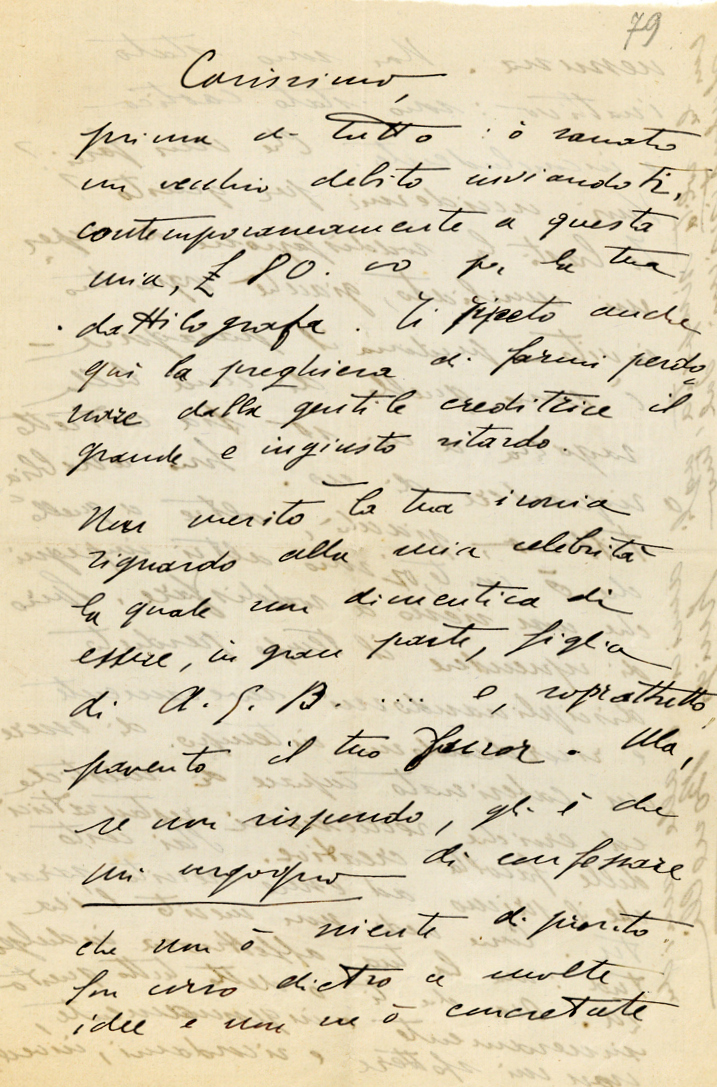 79
Carissimo,
prima di tutto: ò sanato
un vecchio debito inviandoti,
contemporaneamente a questa
mia, £ 80. oo per la tua
dattilografa. Ti ripeto anche
qui la preghiera di farmi perdo-
nare dalla gentile creditrice il
grande e ingiusto ritardo.
Non merito la tua ironia
riguardo alla mia celebrità
la quale non dimentica di
essere, in gran parte, figlia
di A. G. B. .... e, soprattutto,
pavento il tuo furor. Ma,
se non rispondo, gli è che
mi vergogno di confessare
che non ò niente di pronto
son corso dietro a molte
idee e non ne ò concretate